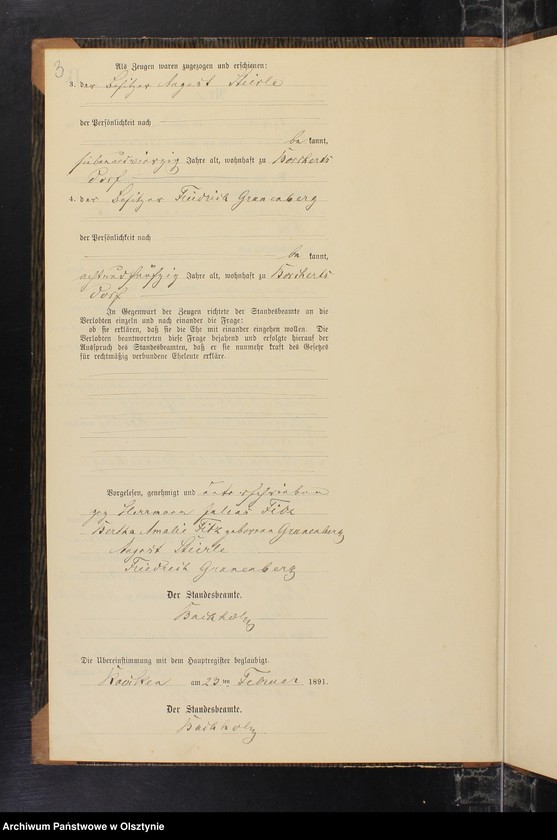 3
Als Zeugen waren zugezogen und erschienen:
3. der Besitzer August Stierle
der Persönlichkeit nach
be kannt,
siebenundvierzig Jahre alt, wohnhaft zu Borcherts
dorf
4. der Besitzer Friedrich Granenberg
der Persönlichkeit nach
be kannt,
achtundfünfzig Jahre alt, wohnhaft zu Borcherts
dorf
In Gegenwart der Zeugen richtete der Standesbeamte an die
Verlobten einzeln und nach einander die Frage:
ob sie erklären, daß sie die Ehe mit einander eingehen wollen. Die
Verlobten beantworteten diese Frage bejahend und erfolgte hierauf der
Ausspruch des Standesbeamten, daß er sie nunmehr kraft des Gesetzes
für rechtmäßig verbundene Eheleute erkläre.
Vorgelesen, genehmigt und unterschrieben
gez Herrmann Julius Fitz
Bertha Amalie Fitz geborene Granenberg
August Stierle
Friedrich Granenberg
Der Standesbeamte.
Buchholz
Die Übereinstimmung mit dem Hauptregister beglaubigt
am 23 ten Februar 1891.
Der Standesbeamte.
Buchholz
Archiwum Państwowe w Olsztynie